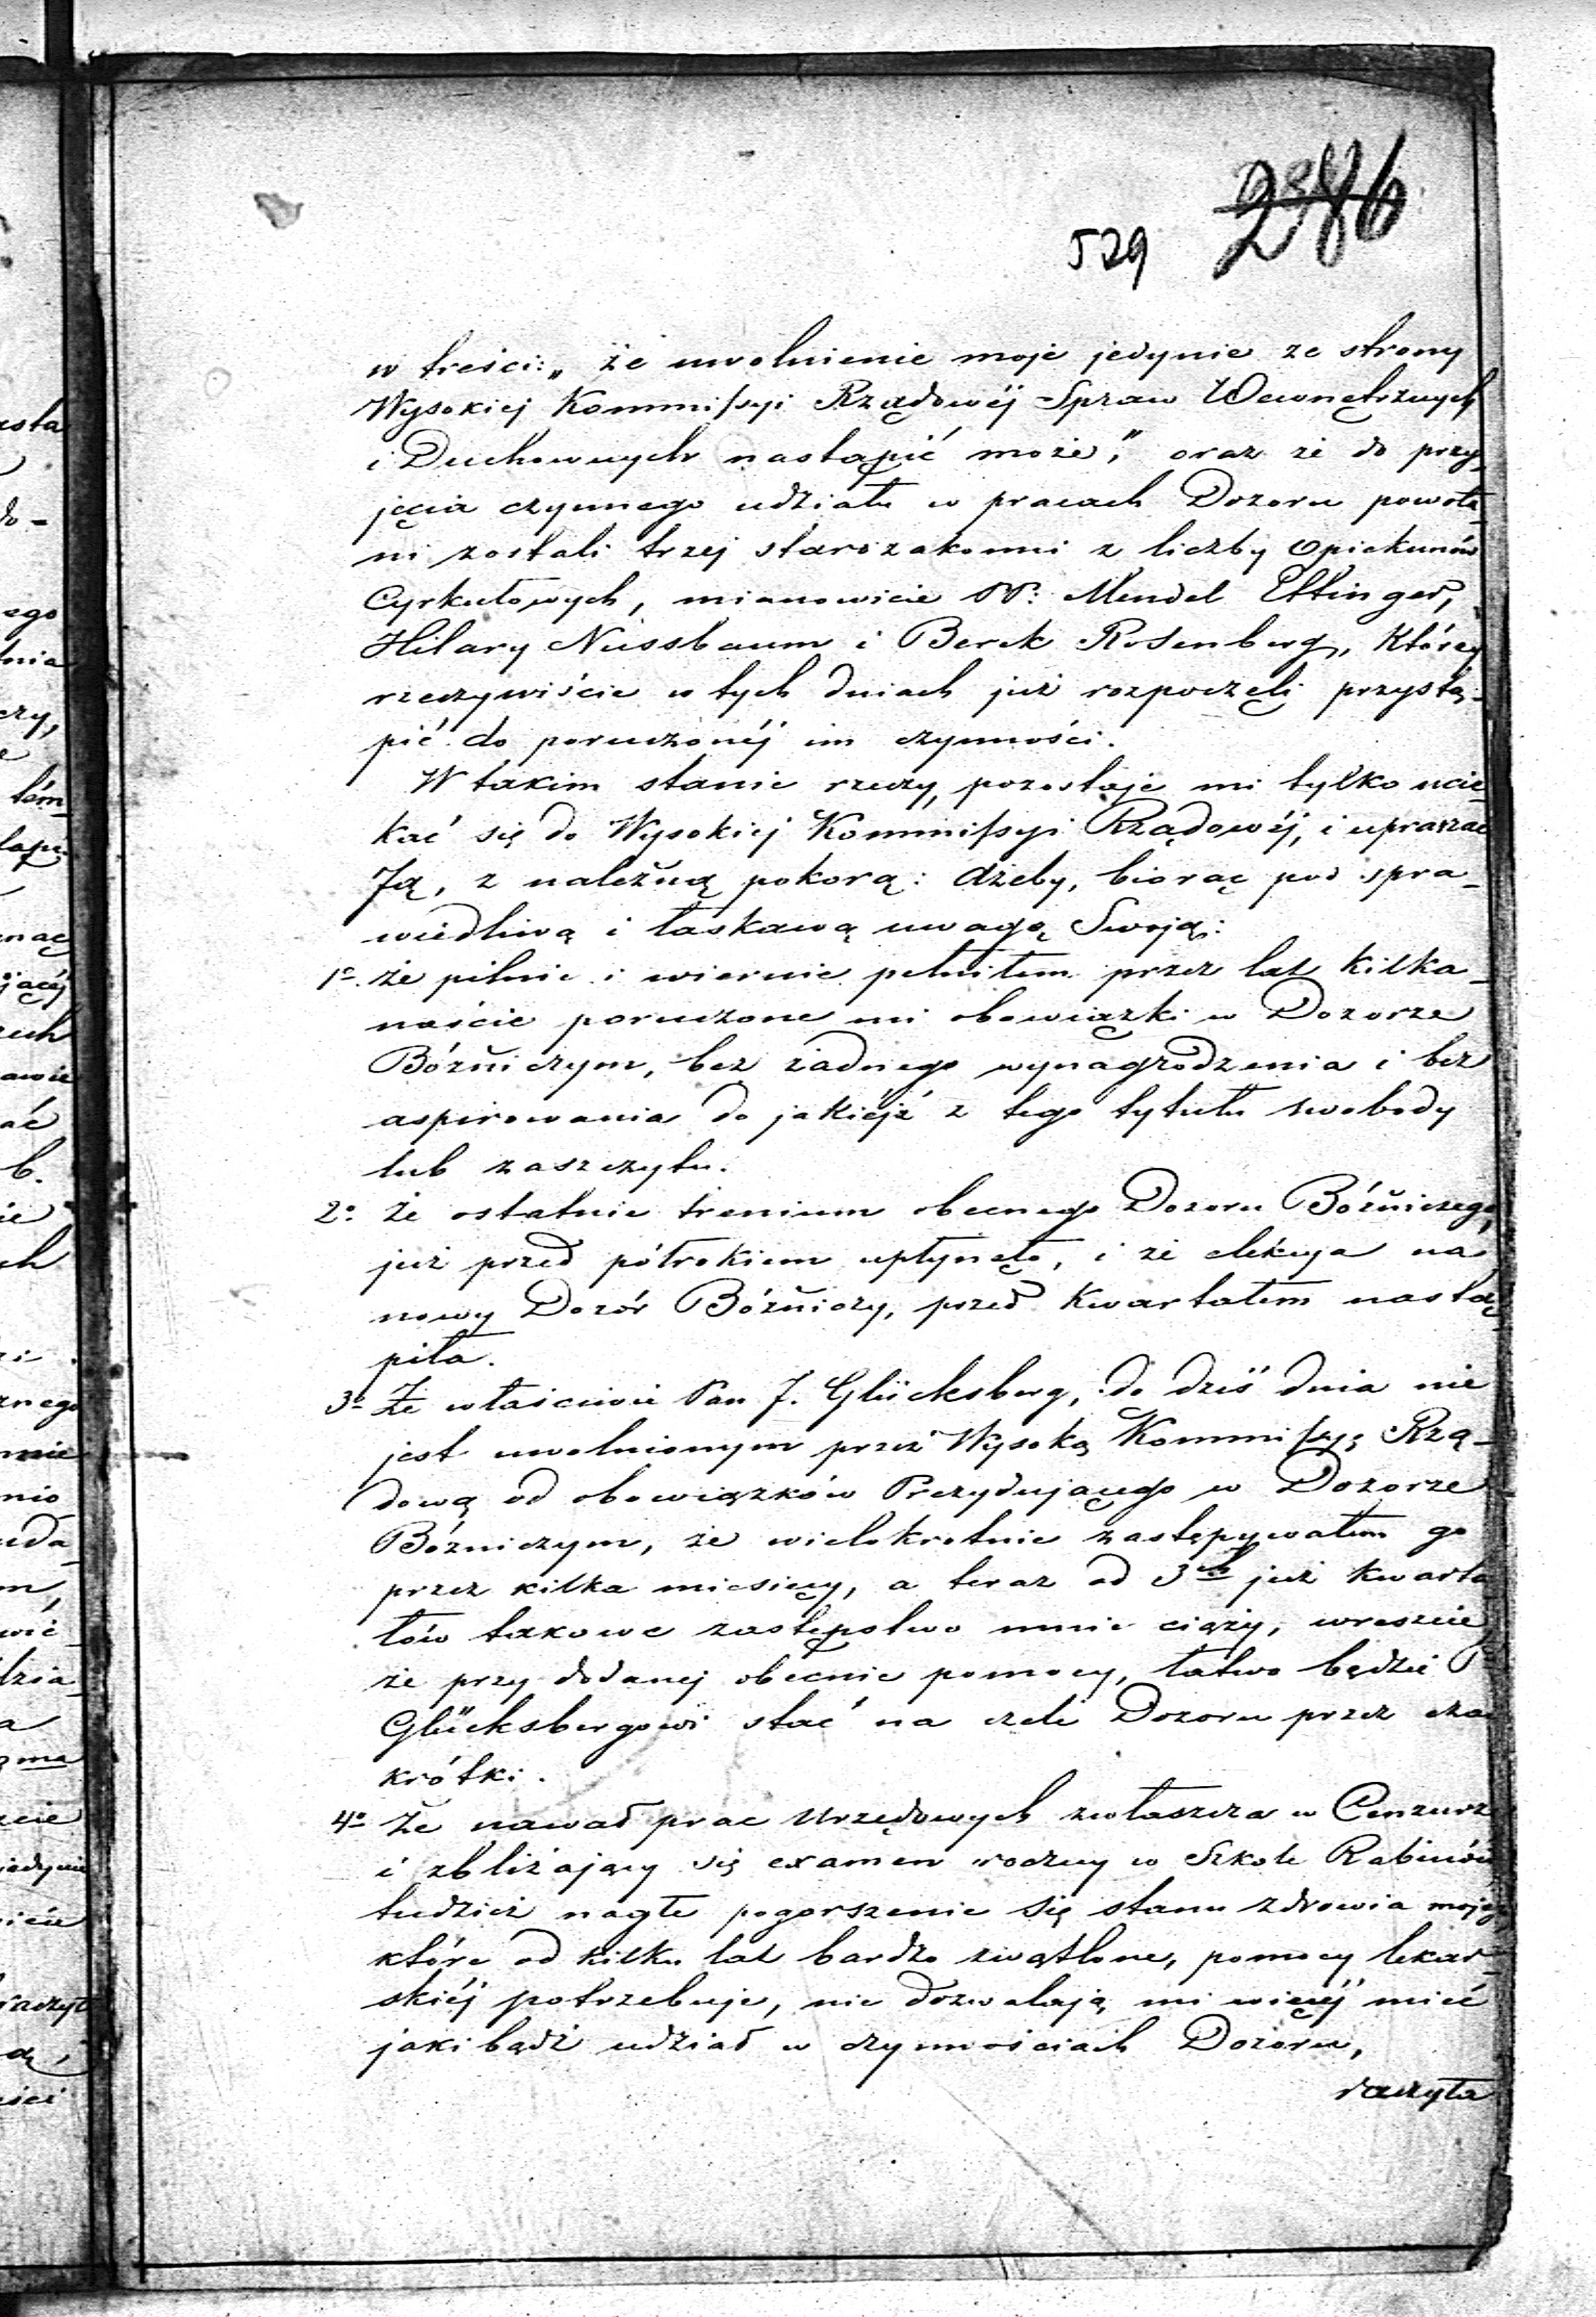 529 286
w treści: „że uwolnienie moje jedynie ze strony
Wysokiej Kommissyi Rządowéj Spraw Wewnętrznych
i Duchownych nastąpić może,” oraz że do przy-
jęcia czynnego udziału w pracach Dozoru powoła-
ni zostali trzej starozakonni z liczby Opiekunów
Cyrkułowych, mianowicie PP: Mendel Ettinger,
Hilary Nussbaum i Berek Rosenberg, którzy
rzeczywiście w tych dniach już rozpoczęli przystą-
pić do poruczonéj im czynności.
W takim stanie rzeczy, pozostaje mi tylko ucie-
kać się do Wysokiej Kommissyi Rządowéj, i upraszać
Ją, z należną pokorą: ażeby, biorąc pod spra-
wiedliwą i łaskawą uwagę Swoją:
1o. że pilnie i wiernie pełniłem przez lat kilka-
naście poruczone mi obowiązki w Dozorze
Bóżniczym, bez żadnego wynagrodzenia i bez
aspirowania do jakiéjż z tego tytułu swobody
lub zaszczytu.
2o. że ostatnie trenium obecnego Dozoru Bóżniczego,
już przed półrokiem upłynęło, i że elekcya na
nowy Dozór Bóżniczy, przed kwartałem nastą-
piła.
3o. Że właściwie Pan J. Glücksberg, do dziś dnia nie
jest uwolnionym przez Wysoką Kommissyę Rzą-
dową od obowiązków Prezydującego w Dozorze
Bóżniczym, że wielokrotnie zastępywałem go
przez kilka miesięcy, a teraz od 3ch już kwarta-
łów takowe zastępstwo mnie ciąży, wreszcie
że przy dodanej obecnie pomocy, łatwo będzie P
Glücksbergowi stać na czele Dozoru przez czas
krótki.
4o. Że nawał prac Urzędowych zwłaszcza w Cenzurze
i zbliżający się examen roczny w Szkole Rabinów
tudzież nagłe pogorszenie się stanu zdrowia mojego
które od kilku lat bardzo zwątlone, pomocy lekar-
skiéj potrzebuje, nie dozwalają mi więcéj mieć
jaki bądź udział w czynnościach Dozoru,
raczyła